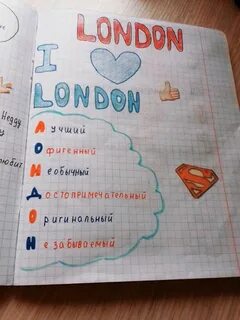 LONDON
I
LONDON
Лучший
Офигенный
Необычный
Достопримечательный
Оригинальный
Незабываемый
S